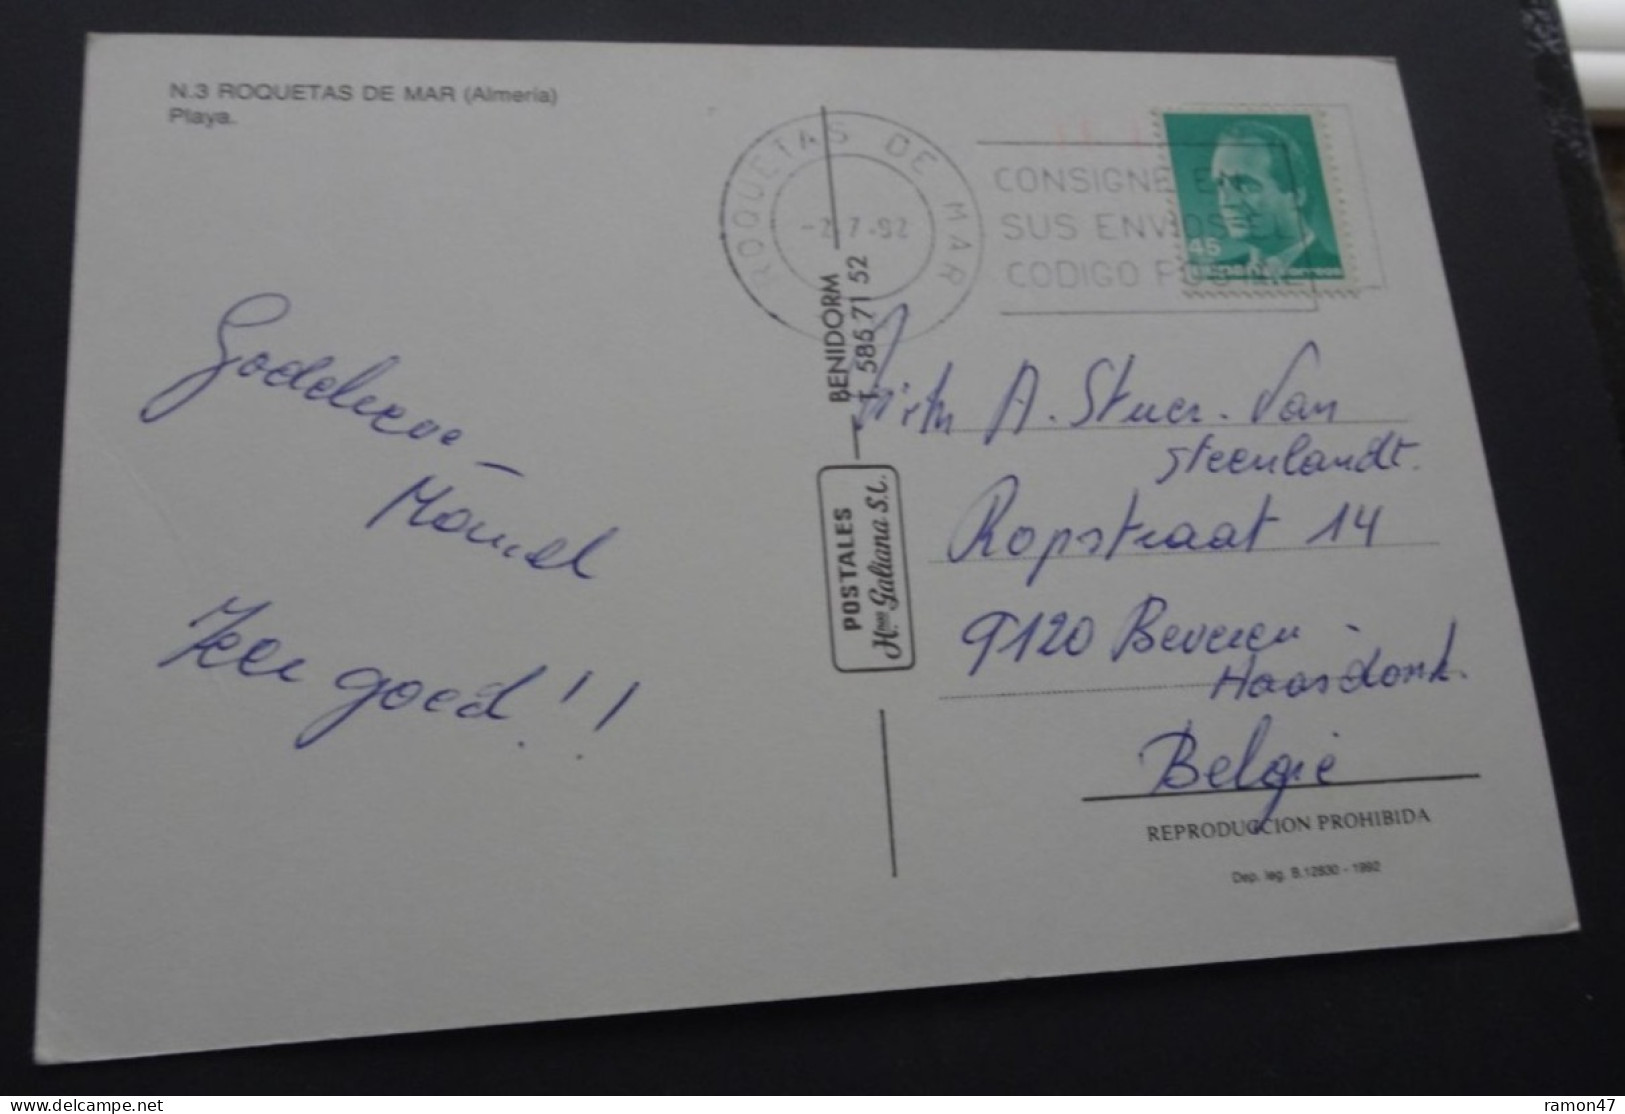 N.3 ROQUETAS DE MAR (Almería)
Playa.
ROQUETAS DE MAR
-2.7.92
CONSIGNE EN
SUS ENVIOS EL
CODIGO POSTAL
45
España correos
Godelieve -
Marcel
Zeer goed!!
BENIDORM
T. 586 71 52
POSTALES
Hnos Galiana S.L.
A. Stuer-Van
Steenlandt.
Ropstraat 14
9120 Beveren -
Haasdonk.
België
REPRODUCCION PROHIBIDA
Dep. leg. B.12830 - 1992
ramon47